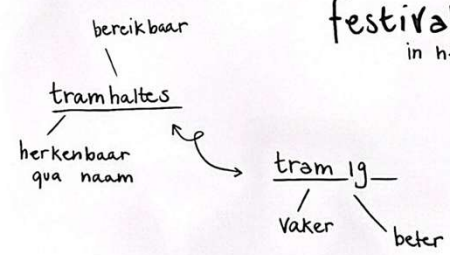 bereikbaar
festiva
in h
tramhaltes
herkenbaar
qua naam
tram 19
vaker
beter